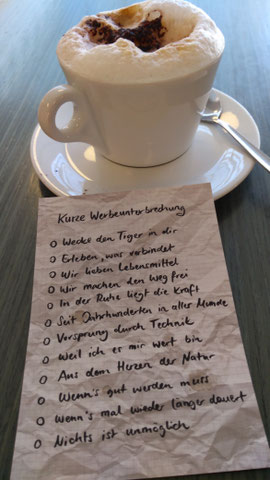 Kurze Werbeunterbrechung
o Wecke den Tiger in dir
o Erleben, was verbindet
o Wir lieben Lebensmittel
o Wir machen den Weg frei
o In der Ruhe liegt die Kraft
o Seit Jahrhunderten in aller Munde
o Vorsprung durch Technik
o Weil ich es mir wert bin
o Aus dem Herzen der Natur
o Wenn's gut werden muss
o Wenn's mal wieder länger dauert
o Nichts ist unmöglich